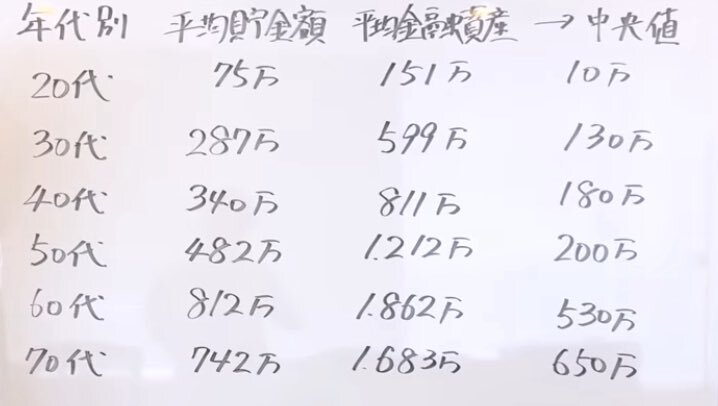 年代別 平均貯金額 平均金融資産 → 中央値
20代 75万 151万 10万
30代 287万 599万 130万
40代 340万 811万 180万
50代 482万 1.212万 200万
60代 812万 1.862万 530万
70代 742万 1.683万 650万